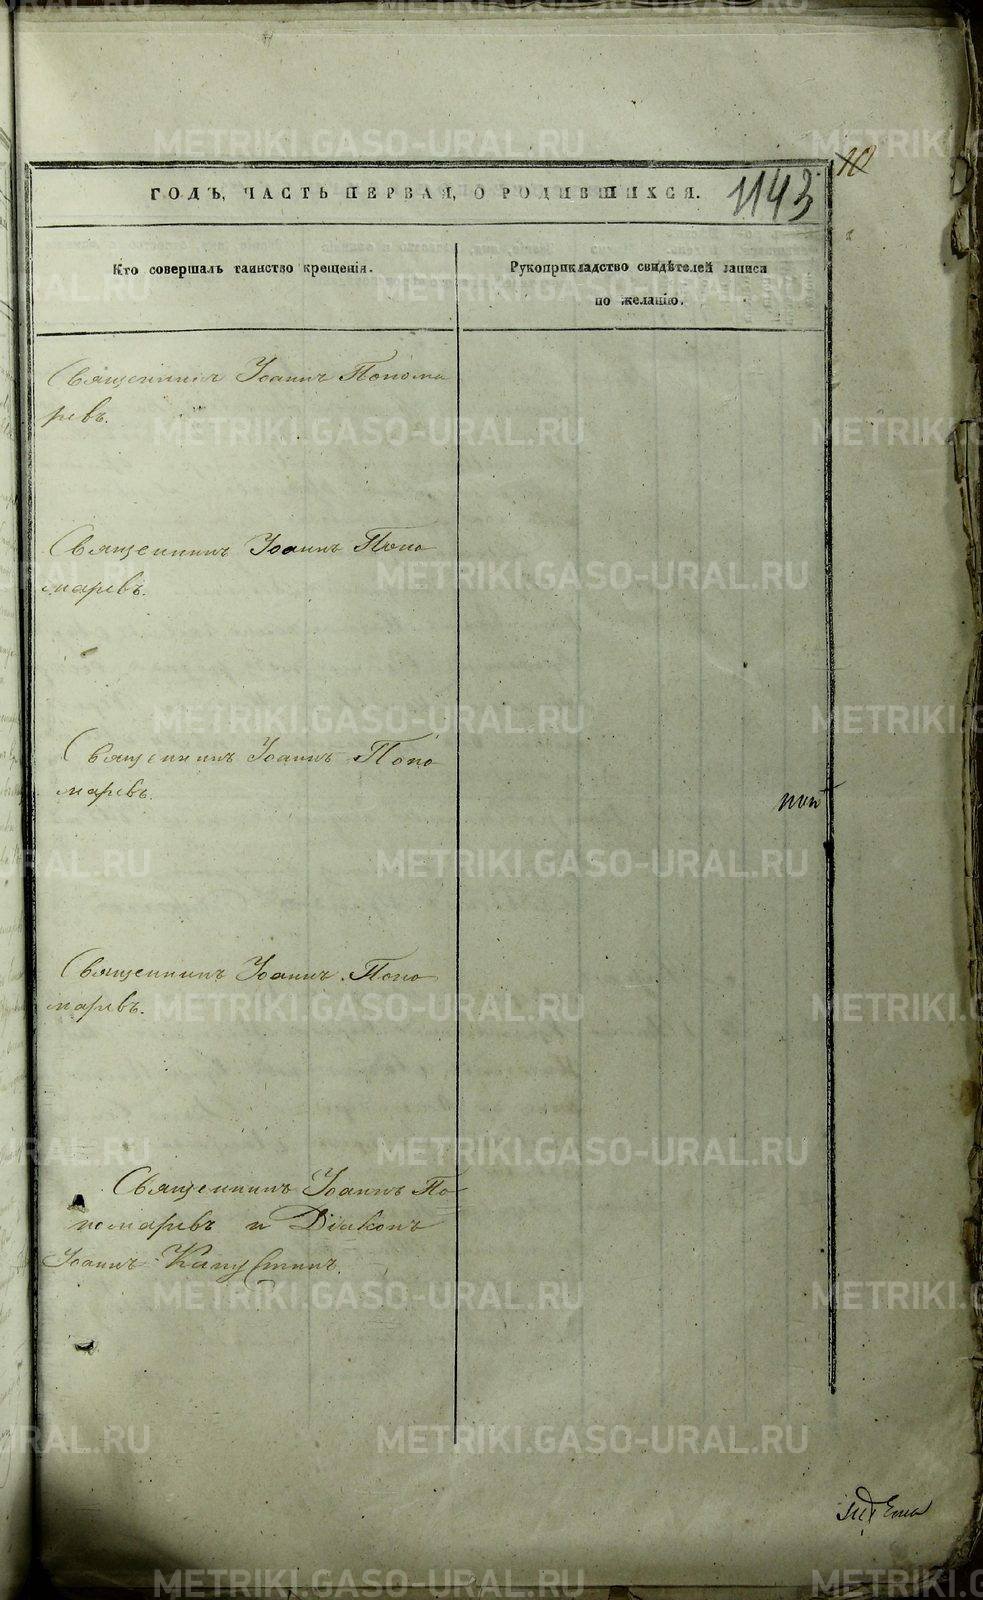 10
ГОДЪ, ЧАСТЬ ПЕРВАЯ, О РОДИВШИХСЯ.
1143
Кто совершалъ таинство крещенія.
Рукоприкладство свидѣтелей записи
по желанію.
Священникъ Іоаннъ Понома
ревъ.
Священникъ Іоаннъ Поно
маревъ.
Священникъ Іоаннъ Поно
маревъ.
Священникъ Іоаннъ Поно
маревъ.
Священникъ Іоаннъ По
номаревъ и Діаконъ
Іоаннъ Капустинъ.
METRIKI.GASO-URAL.RU